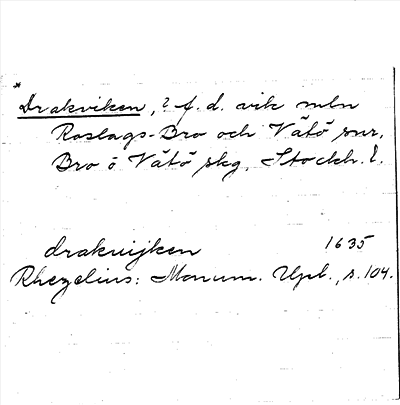 *
Drakviken, ? f. d. vik mln
Roslags-Bro och Vätö snr,
Bro o Vätö skg, Stockh. l.
drakvijken 1635
Rhezelius: Monum. Upl., s. 104.